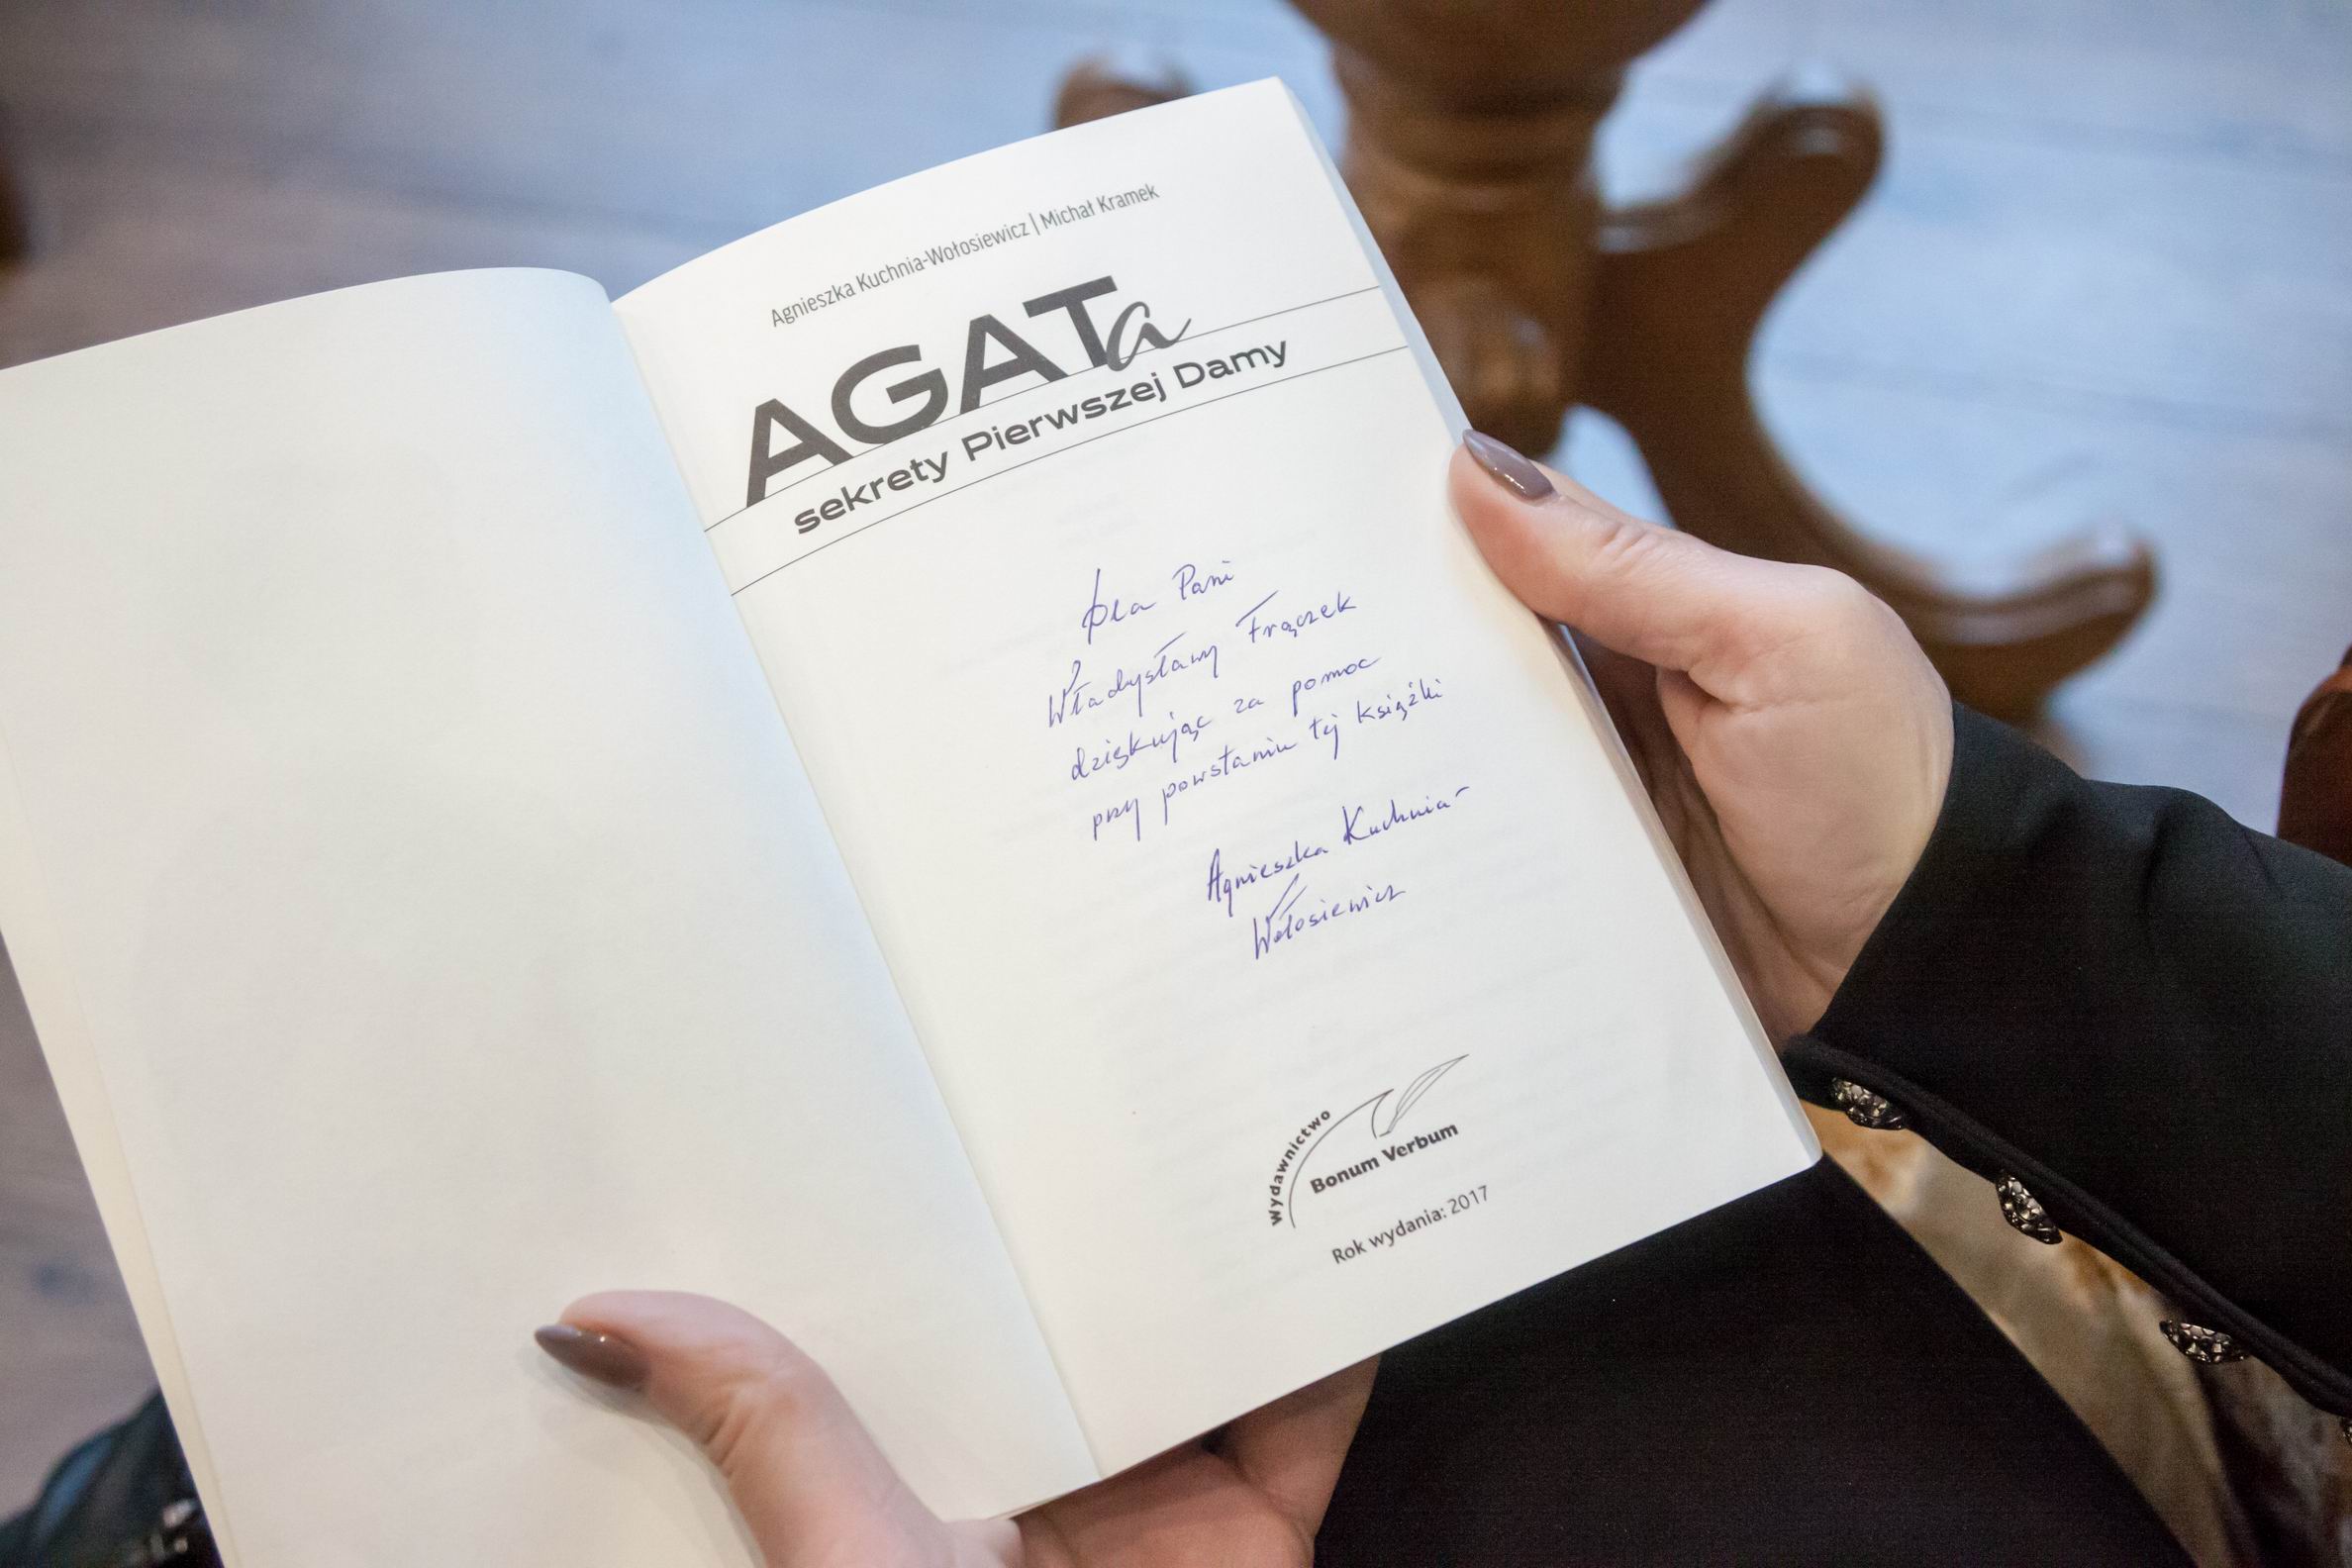 Agnieszka Kuchnia-Wołosiewicz | Michał Kramek
AGATa
sekrety Pierwszej Damy
Dla Pani
Władysławy Frączek
dziękując za pomoc
przy powstaniu tej książki
Agnieszka Kuchnia-
Wołosiewicz
Wydawnictwo
Bonum Verbum
Rok wydania: 2017